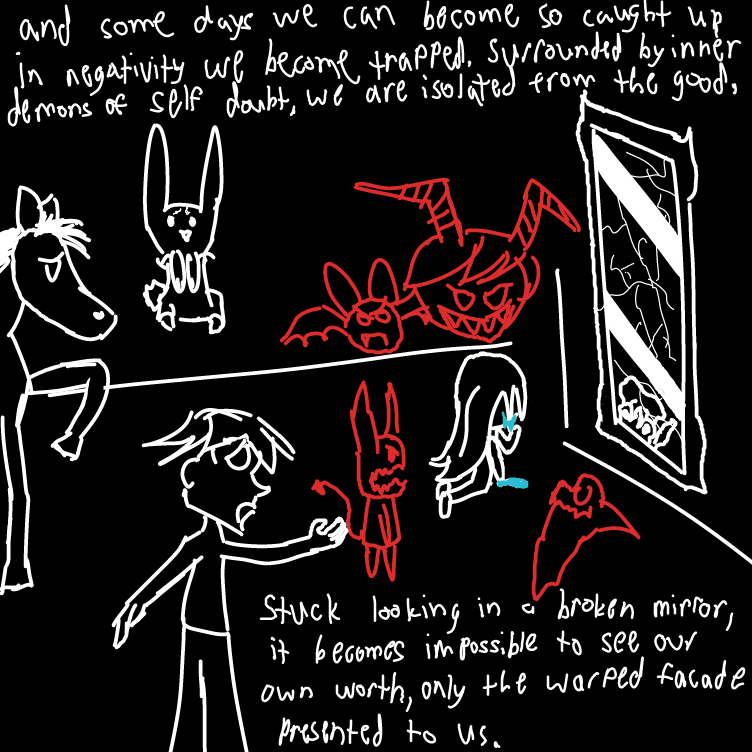 and some days we can become so caught up
in negativity we become trapped. Surrounded by inner
demons of self doubt, we are isolated from the good.
Stuck looking in a broken mirror,
it becomes impossible to see our
own worth, only the warped facade
presented to us.